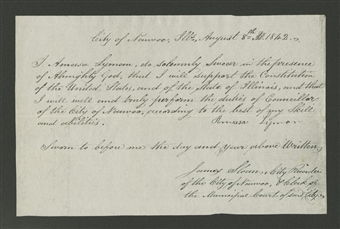 City of Nauvoo, Ills, August 8th A.D. 1842.
I Amasa Lyman, do solemnly Swear in the presence
of Almighty God, that I will support the Constitution
of the United States, and of the State of Illinois, and that
I will well and truly perform the duties of Councillor
of the City of Nauvoo, according to the best of my Skill
and abilities. Amasa Lyman
Sworn to before me the day and year above Written,
James Sloan, City Recorder
of the City of Nauvoo, & Clerk of
the Municipal Court of said City.